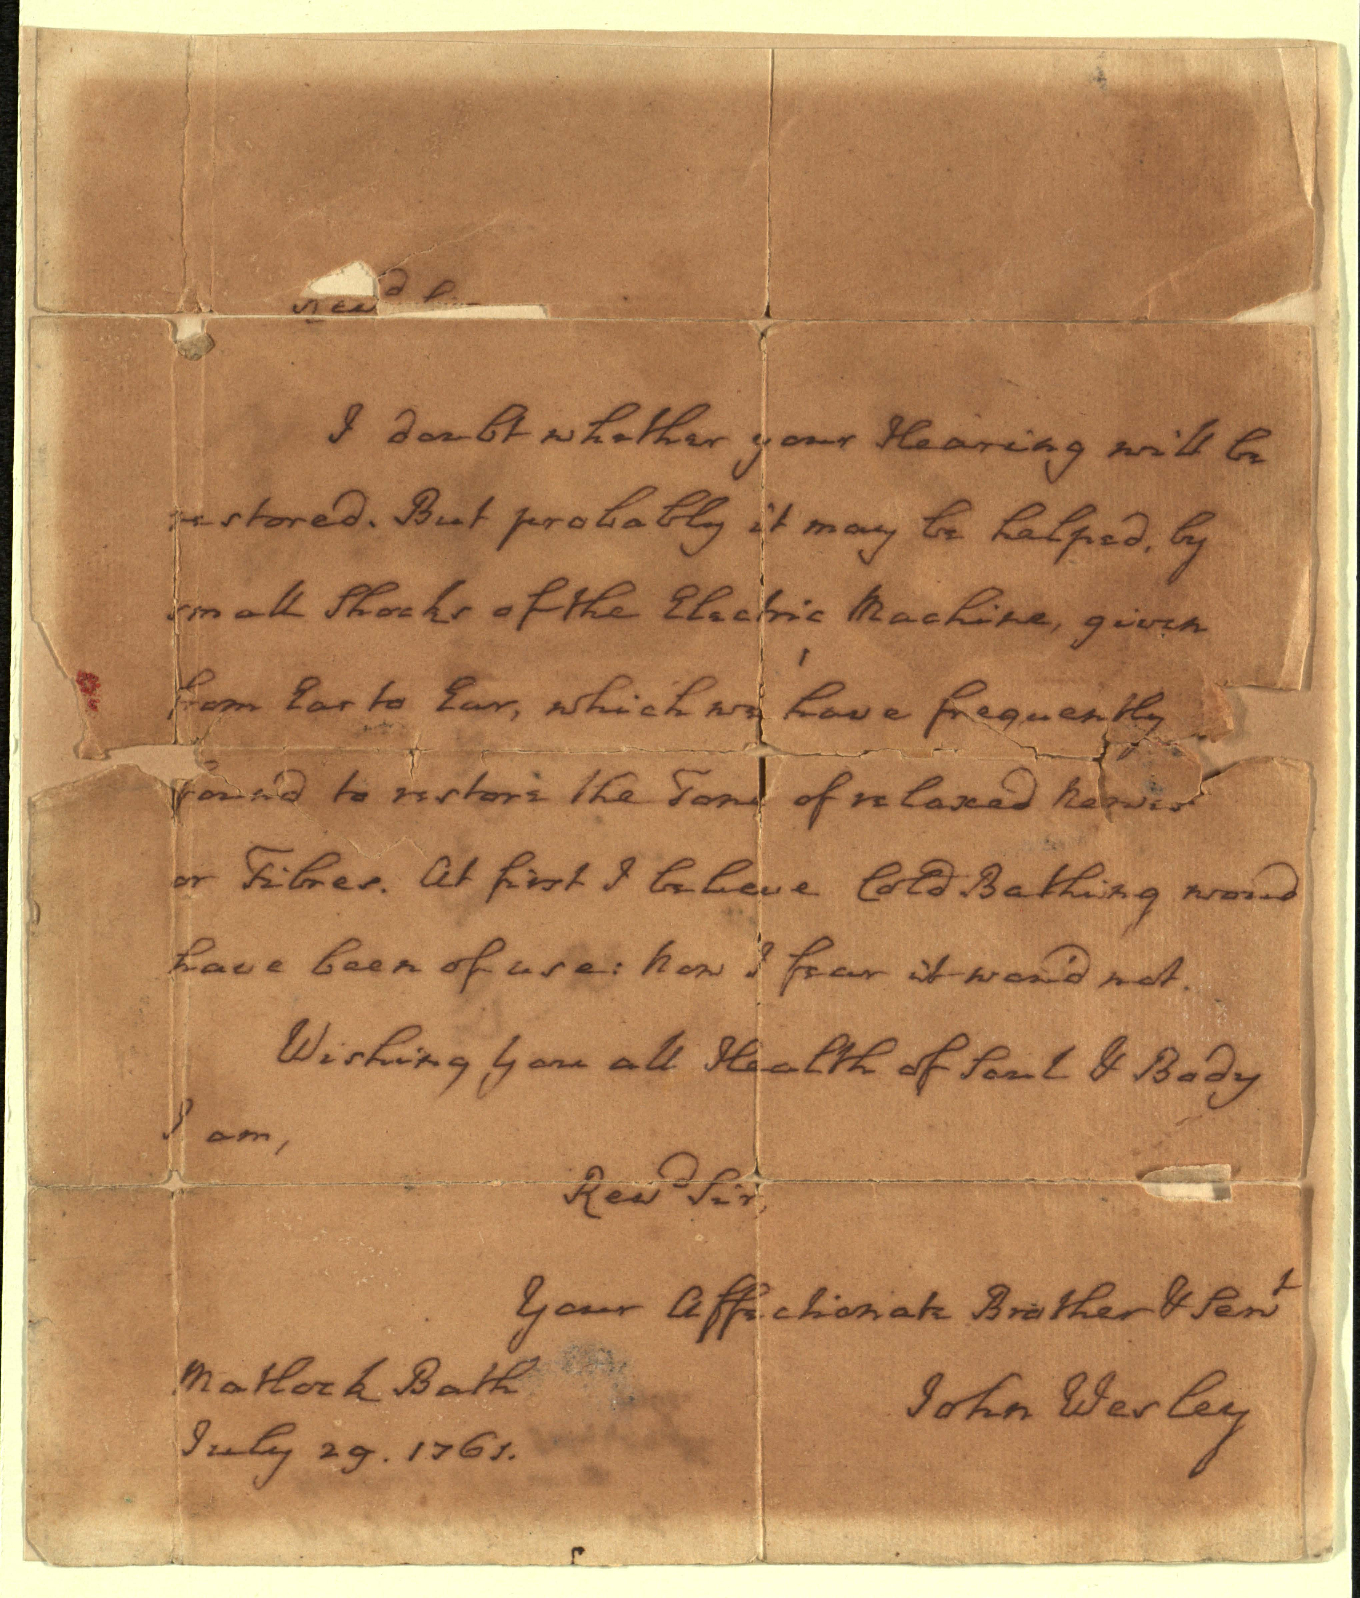 Revd
I doubt whether your Hearing will be
restored. But probably it may be helped, by
small Shocks of the Electric Machine, given
from Ear to Ear, which we have frequently
found to restore the Tone of relaxed Nerves
or Fibres. At first I believe Cold Bathing woud
have been of use: Now I fear it wou'd not.
Wishing you all Health of Soul & Body
I am,
Revd Sir,
Your Affectionate Brother & Servt
Matlock Bath
John Wesley
July 29. 1761.